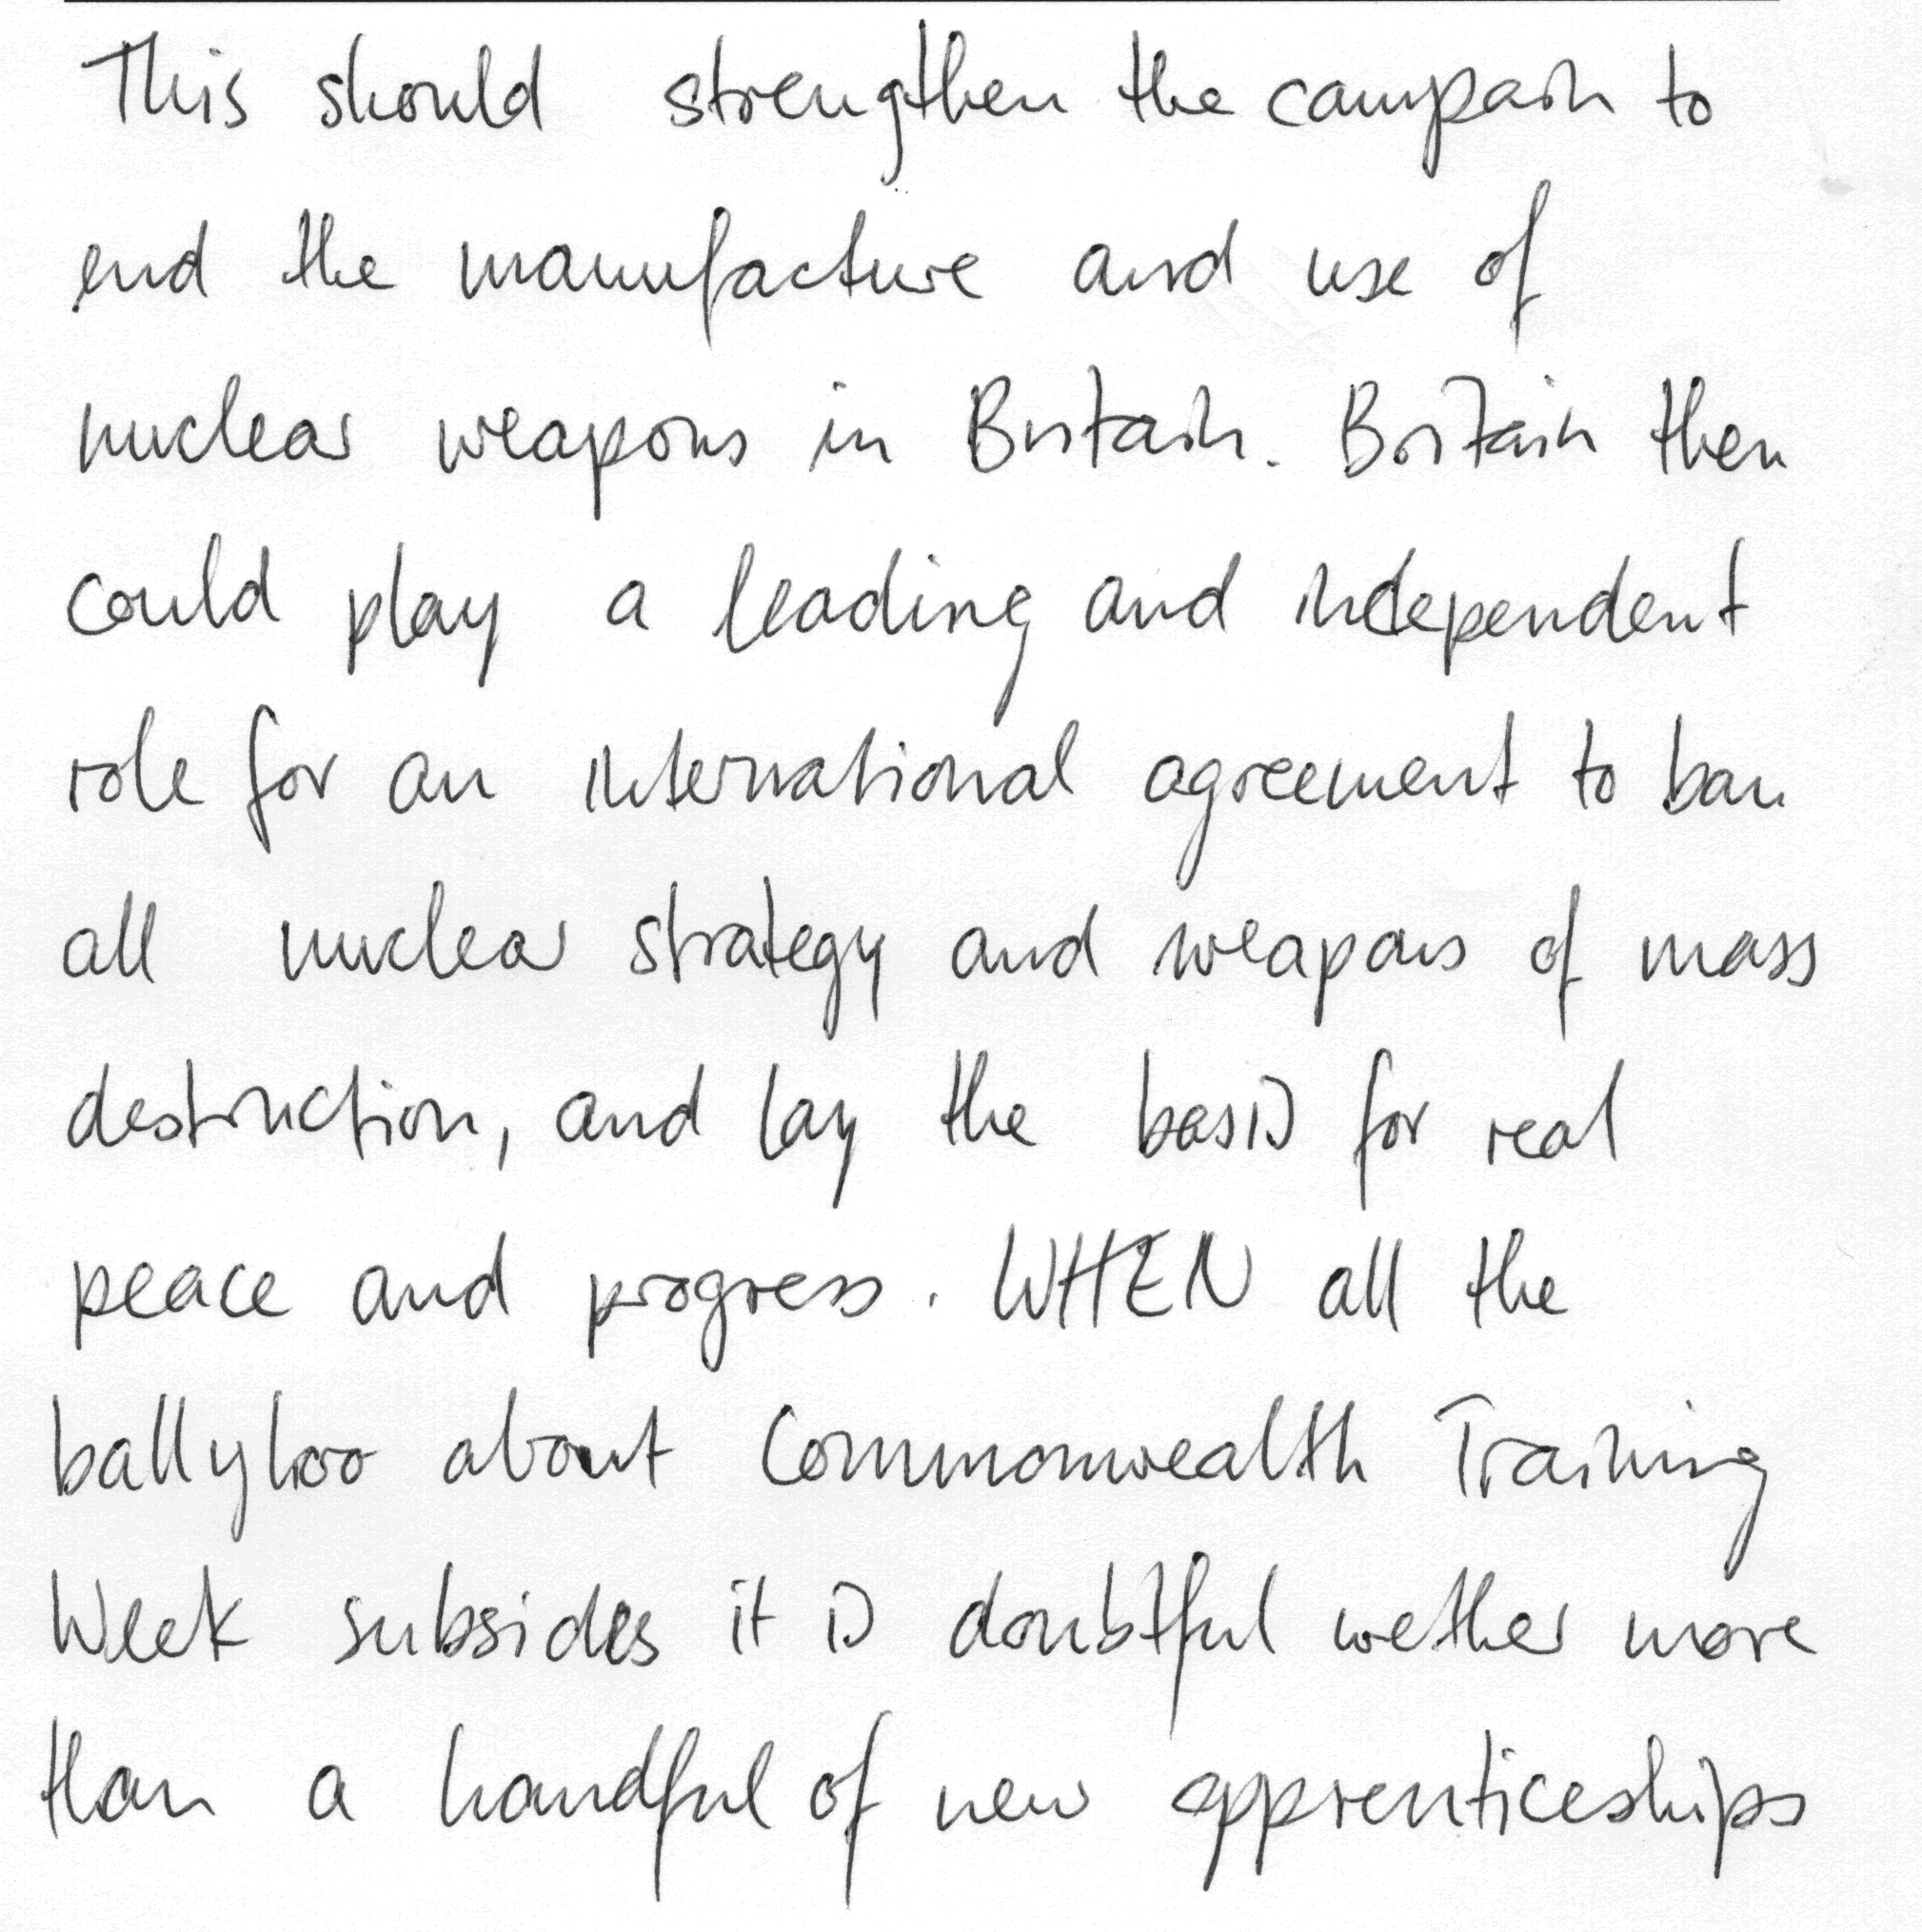 This should strengthen the campain to
end the manufacture and use of
nuclear weapons in Britain. Britain then
could play a leading and independent
role for an international agreement to ban
all nuclear strategy and weapons of mass
destruction, and lay the basis for real
peace and progress. WHEN all the
ballyhoo about Commonwealth Training
Week subsides it is doubtful wether more
than a handful of new apprenticeships